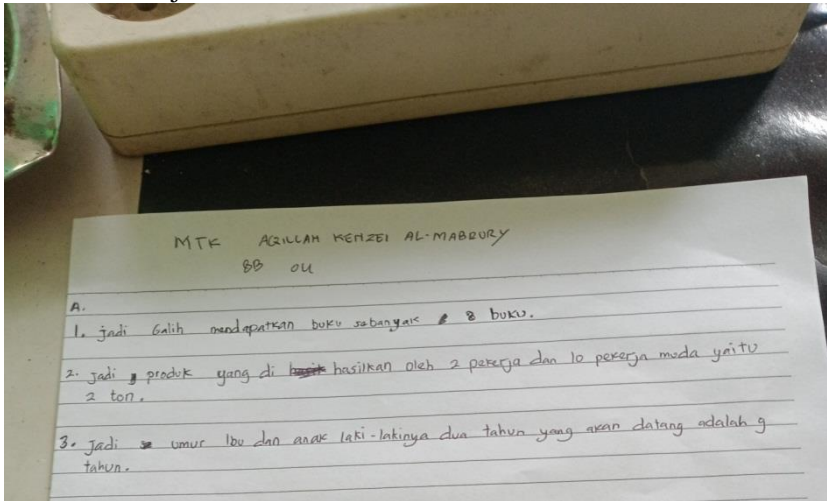 MTK AQILLAH KENZEI AL-MABRURY
8B 04
A.
1. jadi Galih mendapatkan buku sebanyak 8 buku.
2. Jadi produk yang di hasilkan oleh 2 pekerja dan 10 pekerja muda yaitu
2 ton.
3. Jadi umur Ibu dan anak laki-lakinya dua tahun yang akan datang adalah 9
tahun.